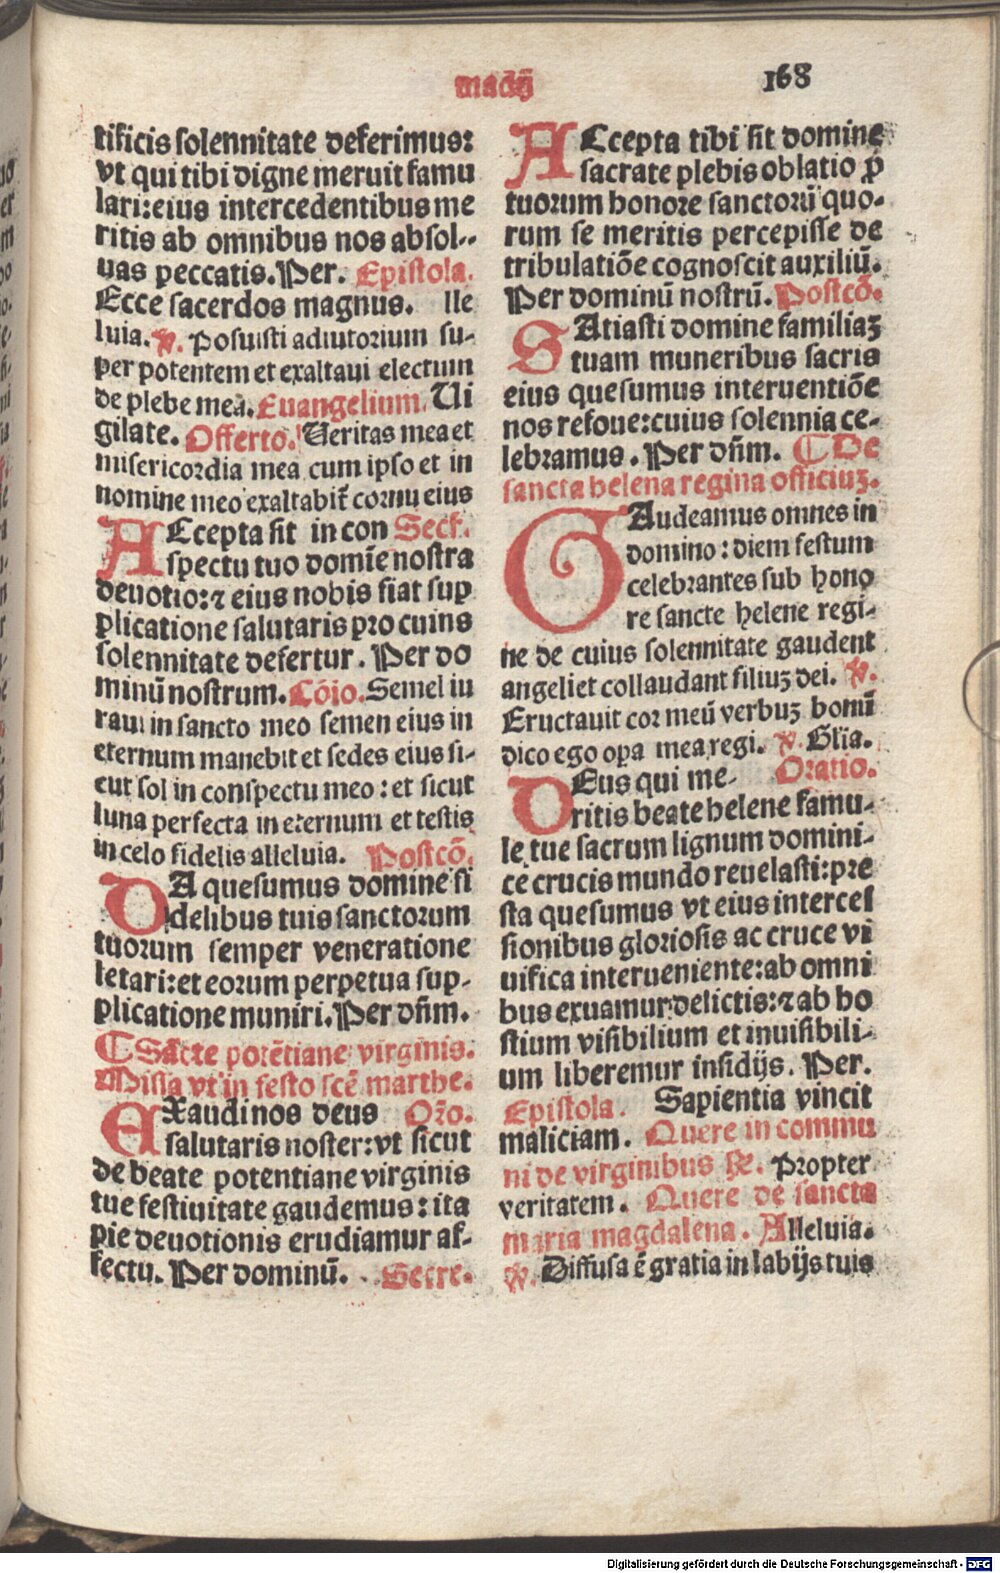 madij
168
tificis solennitate deferimus:
vt qui tibi digne meruit famu
lari: eius intercedentibus me
ritis ab omnibus nos absol-
uas peccatis. Per. Epistola.
Ecce sacerdos magnus. lle
luia. ℣. Posuisti adiutorium su-
per potentem et exaltaui electum
de plebe mea. Euangelium. Ui
gilate. Offerto. Ueritas mea et
misericordia mea cum ipso et in
nomine meo exaltabit̄ cornu eius
ACcepta sit in con Secr̄.
spectu tuo domīe nostra
deuotio: ⁊ eius nobis fiat sup
plicatione salutaris pro cuius
solennitate defertur. Per do
minū nostrum. Cōio. Semel iu
raui in sancto meo semen eius in
eternum manebit et sedes eius si-
cut sol in conspectu meo: et sicut
luna perfecta in eternum et testis
in celo fidelis alleluia. Postcō.
DA quesumus domine fi
delibus tuis sanctorum
tuorum semper veneratione
letari: et eorum perpetua sup-
plicatione muniri. Per dn̄m.
¶ Sācte potētiane virginis.
Missa vt in festo scē marthe.
EXaudi nos deus Oro.
salutaris noster: vt sicut
de beate potentiane virginis
tue festiuitate gaudemus: ita
pie deuotionis erudiamur af-
fectu. Per dominū. Secre.
ACcepta tibi sit domine
sacrate plebis oblatio ꝓ
tuorum honore sanctorū quo-
rum se meritis percepisse de
tribulatiōe cognoscit auxiliū.
Per dominū nostrū. Postcō.
SAtiasti domine familiaꝫ
tuam muneribus sacris
eius quesumus interuentiōe
nos refoue: cuius solennia ce-
lebramus. Per dn̄m. ¶ De
sancta helena regina officiuꝫ.
GAudeamus omnes in
domino: diem festum
celebrantes sub hono
re sancte helene regi-
ne de cuius solennitate gaudent
angeli et collaudant filiuꝫ dei. ℣.
Eructauit cor meū verbuꝫ bonū
dico ego oꝑa mea regi. ℣. Gl̄ia.
DEus qui me- Oratio.
ritis beate helene famu-
le tue sacrum lignum domini-
ce crucis mundo reuelasti: pre
sta quesumus vt eius interces
sionibus gloriosis ac cruce vi
uifica interueniente: ab omni
bus exuamur delictis: ⁊ ab ho
stium visibilium et inuisibili-
um liberemur insidijs. Per.
Epistola. Sapientia vincit
maliciam. Quere in commu
ni de virginibus Propter
veritatem. Quere de sancta
maria magdalena. Alleluia.
℣. Diffusa ē gratia in labijs tuis
Digitalisierung gefördert durch die Deutsche Forschungsgemeinschaft - DFG